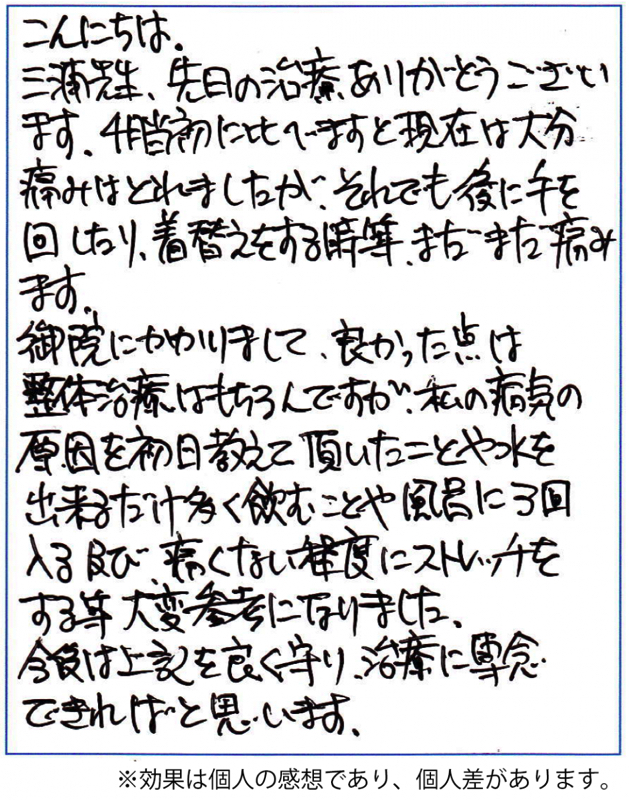 こんにちは。
三浦先生、先日の治療ありがとうござい
ます。当初に比べますと現在は大分
痛みはとれましたが、それでも後に手を
回したり、着替えをする時等、まだまだ痛み
ます。
御院にかかりまして、良かった点は
整体治療はもちろんですが、私の病気の
原因を初日教えて頂いたことや水を
出来るだけ多く飲むことや風呂に3回
入る及び、痛くない程度にストレッチを
する等大変参考になりました。
今後は上記を良く守り、治療に専念
できればと思います。
※効果は個人の感想であり、個人差があります。